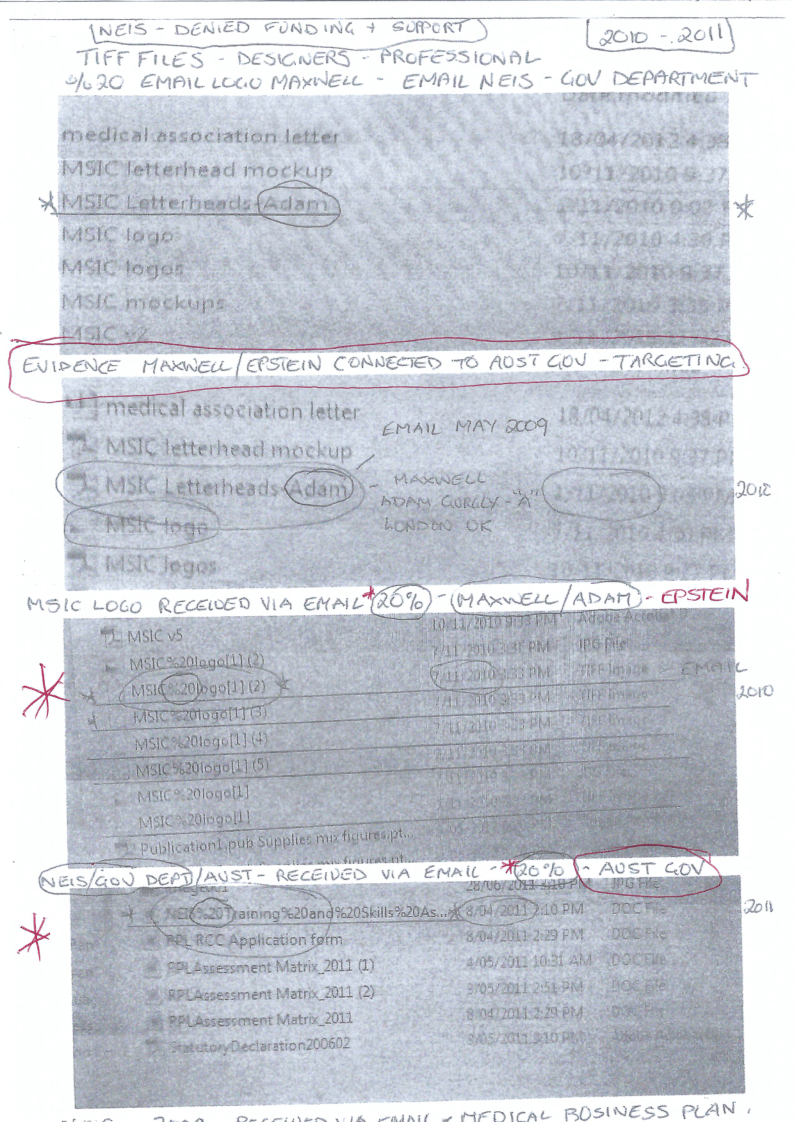 (NEIS - DENIED FUNDING + SUPPORT) 2010 - 2011
TIFF FILES - DESIGNERS - PROFESSIONAL
%20 EMAIL LOGO MAXWELL - EMAIL NEIS - GOV DEPARTMENT
Date modified
medical association letter 18/04/2012 4:38
MSIC letterhead mockup 10/11/2010 9:37
MSIC Letterheads-Adam /11/2010
MSIC logo 7/11/2010 4:30 P
MSIC logos 10/11/2010 9:37
MSIC mockups
MSIC v2
EVIDENCE MAXWELL/EPSTEIN CONNECTED TO AUST GOV - TARGETING.
medical association letter 18/04/2012 4:38 P
EMAIL MAY 2009
MSIC letterhead mockup 10/11/2010 9:37 P
MSIC Letterheads-Adam - MAXWELL 2010
ADAM "A"
MSIC logo LONDON UK
MSIC logos
MSIC LOGO RECEIVED VIA EMAIL *20% - (MAXWELL/ADAM) - EPSTEIN
MSIC v5 10/11/2010 9:33 PM Adobe Acrobat
MSIC%20logo[1] (2) 7/11/2010 3:31 PM JPG File
EMAIL
MSIC%20logo[1] (2) 7/11/2010 3:33 PM TIFF Image 2010
MSIC%20logo[1] (3) 7/11/2010 PM TIFF Image
MSIC%20logo[1] (4)
MSIC%20logo[1] (5)
MSIC%20logo[1]
MSIC%20logo[1]
Publication1.pub Supplies mix figures.pt...
NEIS/GOV DEPT/AUST - RECEIVED VIA EMAIL - *20% - AUST GOV
28/06/2011 3:10 PM JPG File
NEIS%20Training%20and%20Skills%20As... 8/04/2011 2:10 PM DOC File 2011
RPL RCC Application form 8/04/2011 2:29 PM DOC File
RPLAssessment Matrix_2011 (1) 4/05/2011 10:31 AM DOC File
RPLAssessment Matrix_2011 (2) 3/05/2011 2:51 PM DOC File
RPLAssessment Matrix_2011 8/04/2011 2:29 PM DOC File
StatutoryDeclaration200602 3/05/2011 3:10 PM
RECEIVED VIA EMAIL - MEDICAL BUSINESS PLAN.